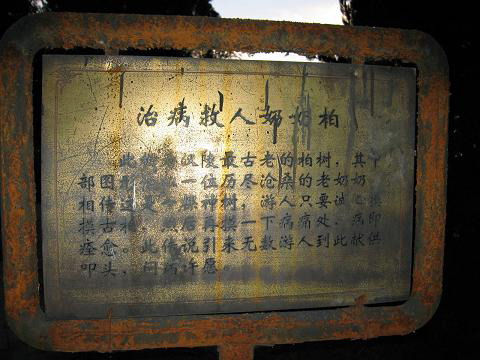 治病救人奶奶柏
此柏为汉陵最古老的柏树，其下
部图形酷似一位历尽沧桑的老奶奶
相传是神树，游人只要诚心摸
摸古柏然后再摸一下病痛处，病即
痊愈。此传说引来无数游人到此献供
叩头，问病许愿。